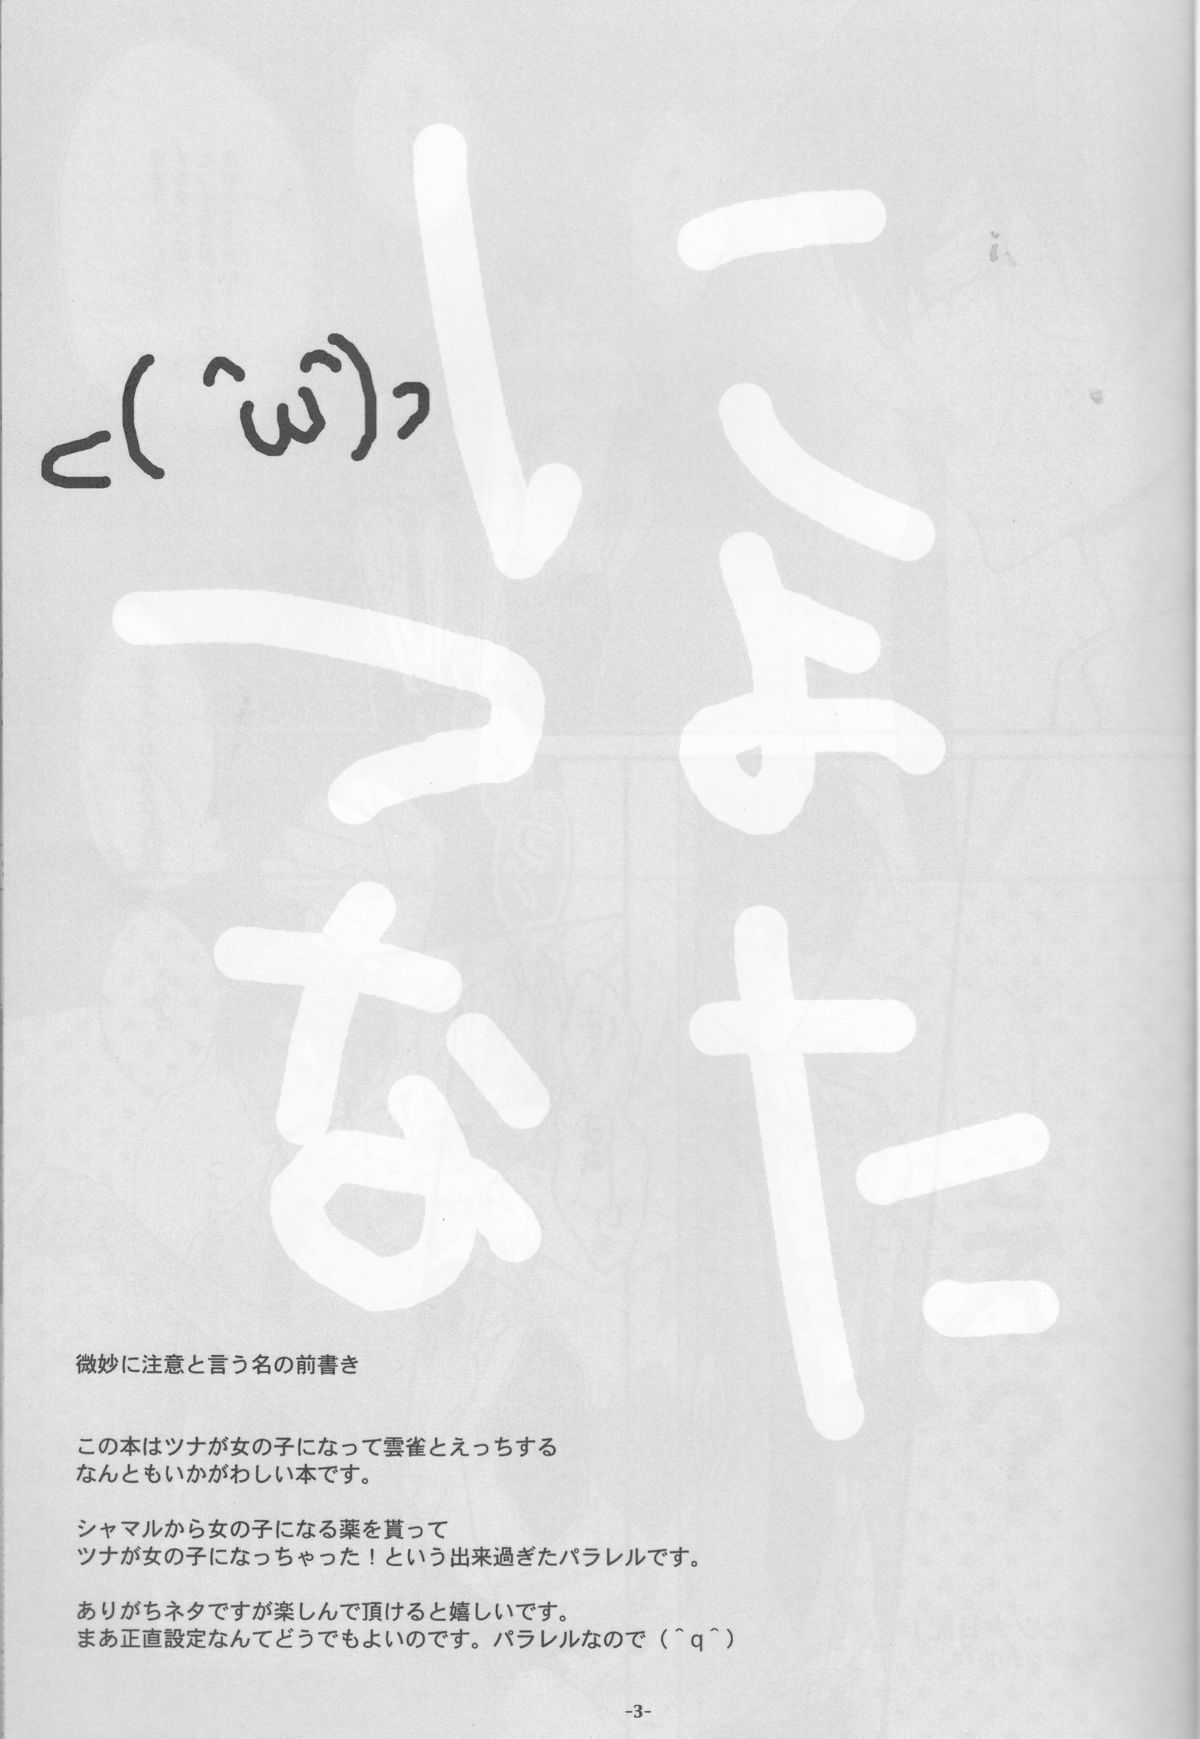 にょた
つな
⊂(＾ω＾)⊃
微妙に注意と言う名の前書き
この本はツナが女の子になって雲雀とえっちする
なんともいかがわしい本です。
シャマルから女の子になる薬を貰って
ツナが女の子になっちゃった！という出来過ぎたパラレルです。
ありがちネタですが楽しんで頂けると嬉しいです。
まあ正直設定なんてどうでもよいのです。パラレルなので（＾ｑ＾）
-3-